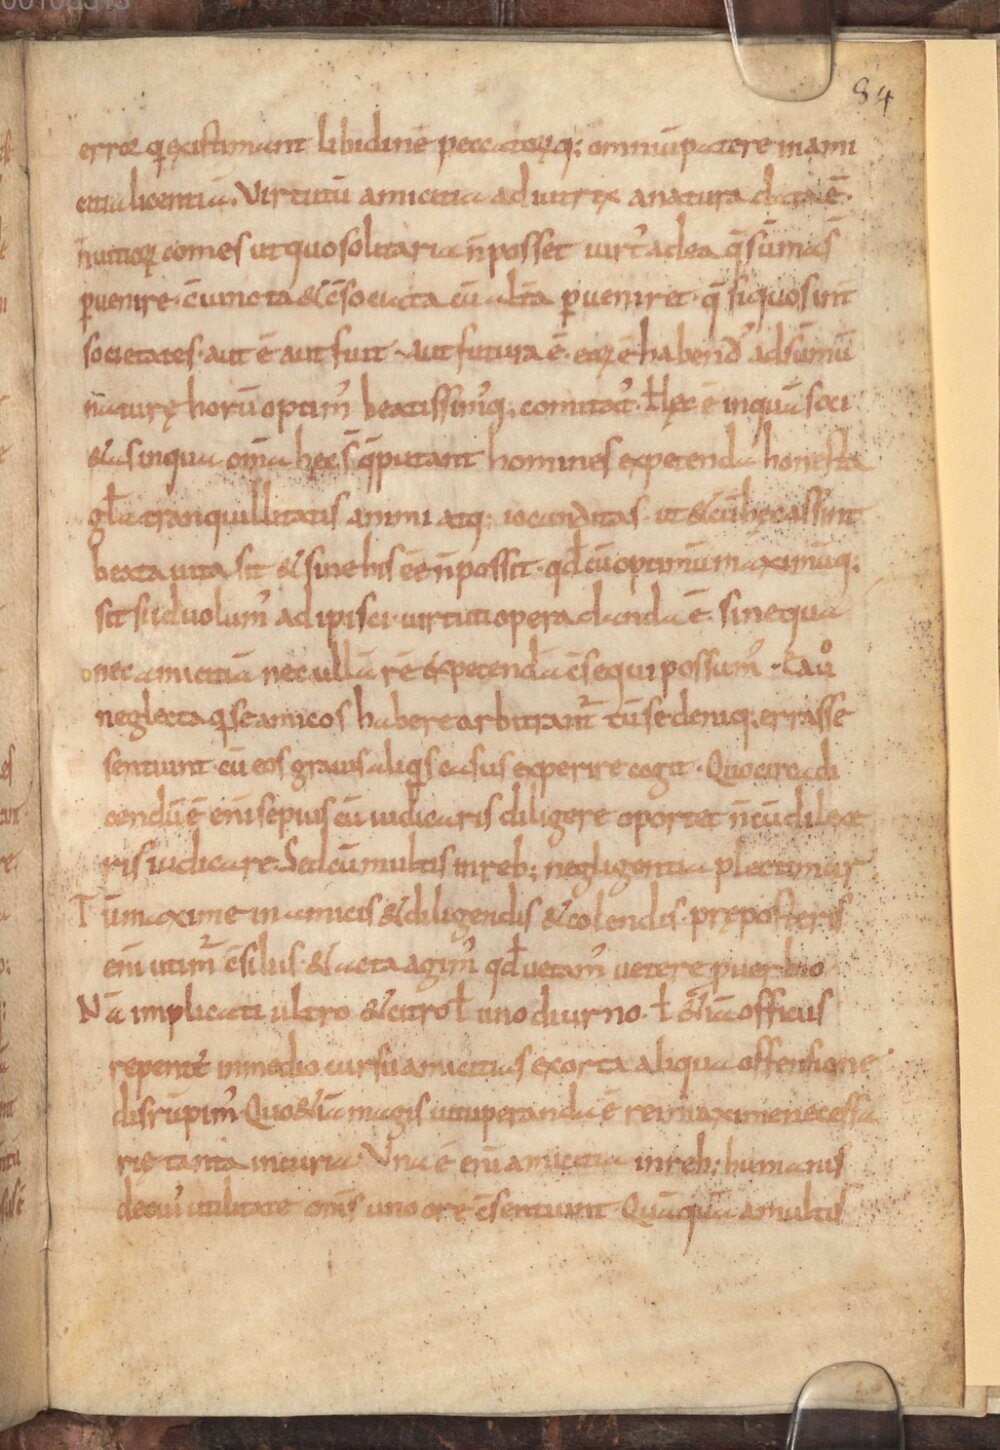 84
error q̄ existimant libidinē peccatorūq; omniū patere in ami
citia licentiā. Virtutū amicitia adiutrix a natura data ē·
n̄ uitiorꝝ comes ut quo solitaria n̄ posset uirt᷒ ad ea q̄ sūmas
ꝑuenire· c̄iuncta & c̄sociata cū alt̄a ꝑueniret· q̄ si quos int̄
societates· aut ē aut fuit aut futura ē· eorꝝ ē habend᷒ ad sūmū
naturę horū optim᷒ beatissim᷒q; comitat᷒. Hęc ē inquā soci
&as in qua om̄ia hęc s̄ q̄ putant homines expetenda honesta
gl̄a tranquillitatis animi atq; iocunditas· ut & cū hęc assint
beata uita sit & sine his eē n̄ possit· qđ cū optimū maximūq;
sit si id uolum᷒ adipisci· uirtuti opera danda ē· sine qua
nec amicitiā nec ullā rē expetendā c̄sequi possum᷒·
neglecta q̄ se amicos habere arbitrant᷒ tū se deniq; errasse
sentiunt· cū eos grauis aliq̄s casus experire cogit· Quocirca di
cendū ē eni sepius cū iudicaris diligere oportet n̄ cū dilexe
ris iudicare. Sed cū multis in reb; negligentia plectimur
Tū maxime in amicis & diligendis & colendis· pręposteris
eni utim᷒ c̄siliis· & acta agim᷒ qđ uetam᷒ uetere ꝓuerbio
Nā implicati ultro & citro ł uno diurno· ł &iā officiis
repente in medio cursu amicitias exorta aliqua offensione
disrūpim᷒· Quo &iā magis uituperanda ē rei maxime necessa
rię tanta incuria· Vna ē eni amicitia in reb; humanis
de cui᷒ utilitate om̄s uno ore c̄sentiunt· Quāquā a multis